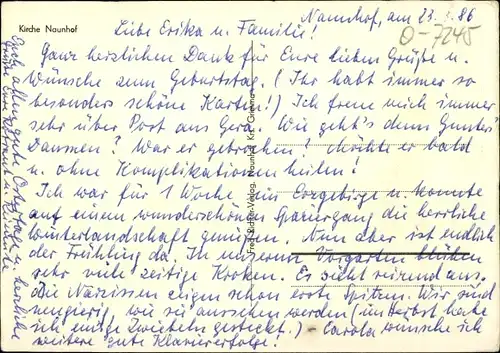 Kirche Naunhof
Naunhof, am 23.3.86
O-7245
Liebe Erika u. Familie!
Ganz herzlichen Dank für Eure lieben Grüße u.
Wünsche zum Geburtstag. (Ihr habt immer so
besonders schöne Karten!) Ich freue mich immer
sehr über Post aus Gera. Wie geht's denn Gunter's
Daumen? War er gebrochen? Möchte er bald
u. ohne Komplikationen heilen!
Ich war für 1 Woche ins Erzgebirge u. konnte
auf einem wunderschönen Spaziergang die herrliche
Winterlandschaft genießen. Nun aber ist endlich
der Frühling da. In unserem Vorgarten blühen
sehr viele zeitige Kroken. Es sieht reizend aus.
Die Narzissen zeigen schon erste Spitzen. Wir sind
neugierig, wie sie aussehen werden (im Herbst habe
ich einige Zwiebeln gesteckt.) - Carola wünsche ich
weitere gute Klaviererfolge!
Euch allen gute Ostertage u. herzliche
Grüße Eure
Verlag, Naunhof Kr. Grimma